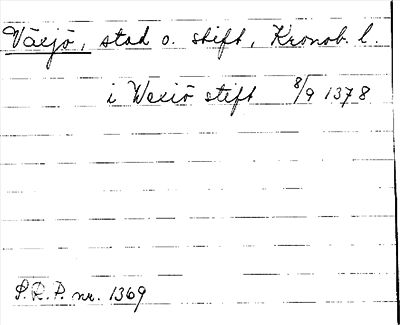 Växjö, stad o. stift, Kronob. l.
i Wexiö stift 8/9 1378
S.R.P. nr. 1369